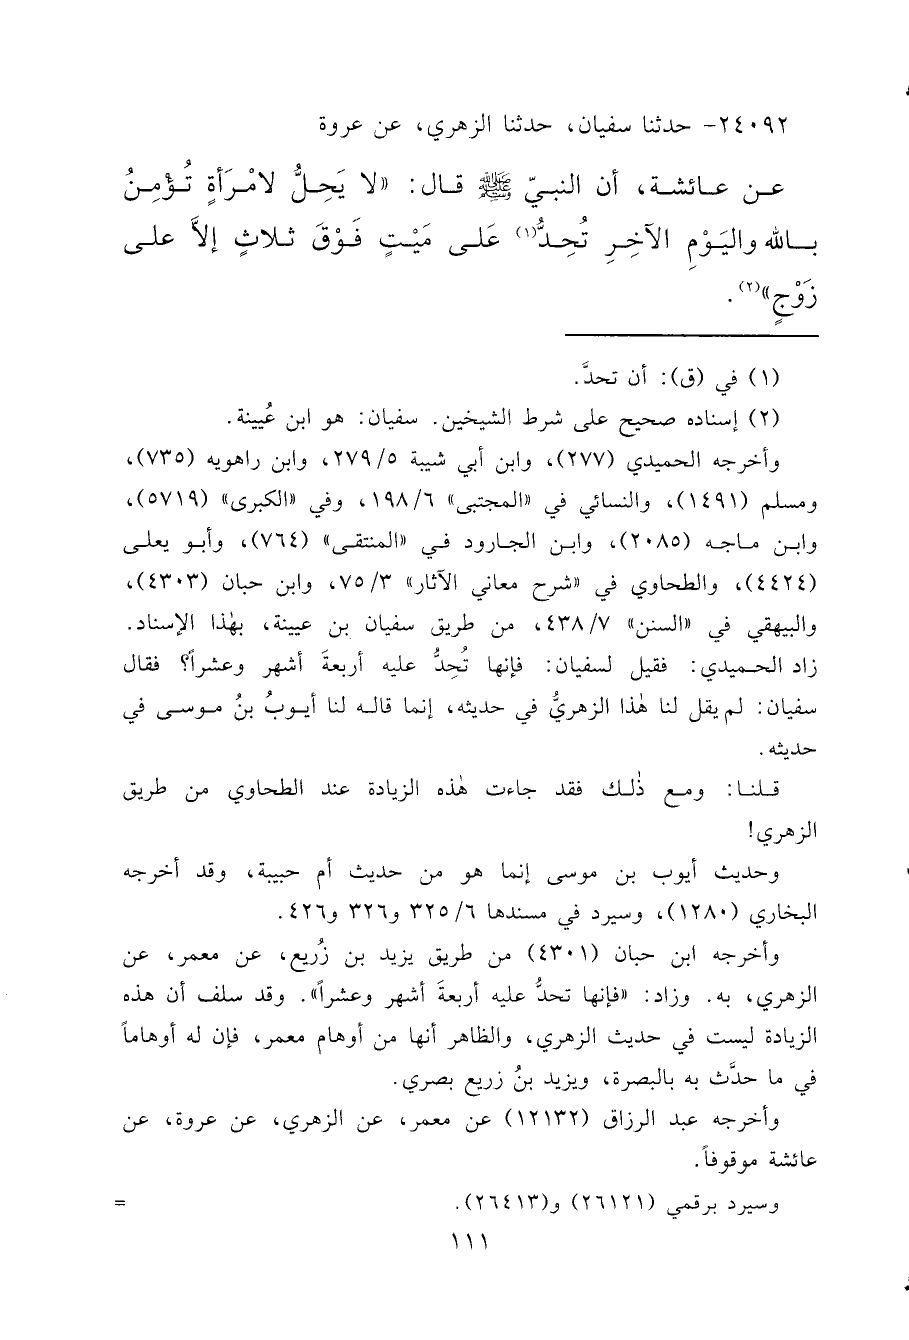 ٢٤٠٩٢- حدثنا سفيان، حدثنا الزهري، عن عروة
عـن عـائشـة، أن النبيّ ﷺ قـال: «لا يَحِـلُّ لامْـرَأةٍ تُـؤْمِـنُ
بـالله واليَوْمِ الآخِـرِ تُحِـدُّ(١) عَلـى مَيْتٍ فَوْقَ ثـلاثٍ إلاَّ علـى
زَوْجٍ»(٢).
(١) في (ق): أن تحدَّ.
(٢) إسناده صحيح على شرط الشيخين. سفيان: هو ابن عُيينة.
وأخرجه الحميدي (٢٧٧)، وابن أبي شيبة ٢٧٩/٥، وابن راهويه (٧٣٥)،
ومسلم (١٤٩١)، والنسائي في «المجتبى» ١٩٨/٦، وفي «الكبرى» (٥٧١٩)،
وابـن مـاجـه (٢٠٨٥)، وابـن الجـارود فـي «المنتقـى» (٧٦٤)، وأبـو يعلـى
(٤٤٢٤)، والطحاوي في «شرح معاني الآثار» ٧٥/٣، وابن حبان (٤٣٠٣)،
والبيهقي في «السنن» ٤٣٨/٧، من طريق سفيان بن عيينة، بهٰذا الإسناد.
زاد الحـميدي: فقيل لسفيان: فإنها تُحِدُّ عليه أربعةَ أشهر وعشراً؟ فقال
سفيان: لم يقل لنا هٰذا الزهريُّ في حديثه، إنما قالـه لنا أيـوبُ بنُ مـوسـى في
حديثه.
قـلنـا: ومـع ذٰلـك فقد جاءت هٰذه الزيادة عند الطحاوي من طريق
الزهري!
وحديث أيوب بن موسى إنما هو من حديث أم حبيبة، وقد أخرجه
البخاري (١٢٨٠)، وسيرد في مسندها ٣٢٥/٦ و٣٢٦ و٤٢٦.
وأخرجه ابن حبان (٤٣٠١) من طريق يزيد بن زُريع، عن معمر، عن
الزهري، به. وزاد: «فإنها تحدُّ عليه أربعةَ أشهر وعشراً». وقد سلف أن هذه
الزيادة ليست في حديث الزهري، والظاهر أنها من أوهام معمر، فإن له أوهاماً
في ما حدَّث به بالبصرة، ويزيد بنُ زريع بصري.
وأخرجه عبد الرزاق (١٢١٣٢) عن معمر، عن الزهري، عن عروة، عن
عائشة موقوفاً.
وسيرد برقمي (٢٦١٢١) و(٢٦٤١٣). =
١١١